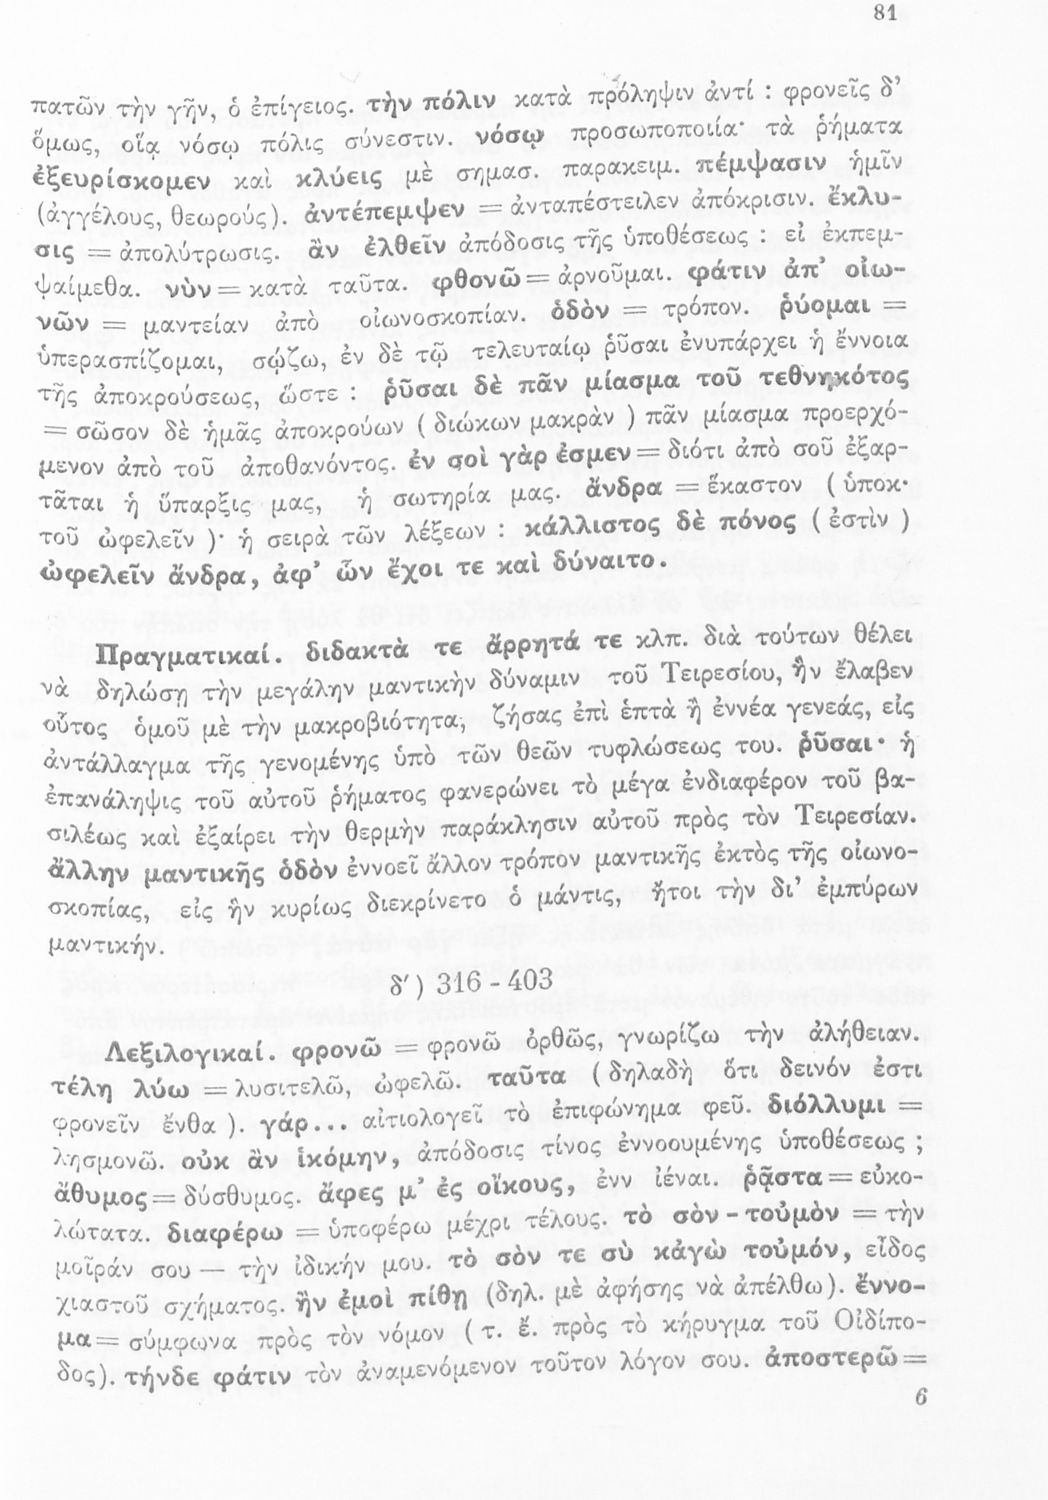 81
πατῶν τὴν γῆν, ὁ ἐπίγειος. τὴν πόλιν κατὰ πρόληψιν ἀντί : φρονεῖς δ’
ὅμως, οἵᾳ νόσῳ πόλις σύνεστιν. νόσῳ προσωποποιία· τὰ ῥήματα
ἐξευρίσκομεν καὶ κλύεις μὲ σημασ. παρακειμ. πέμψασιν ἡμῖν
(ἀγγέλους, θεωρούς). ἀντέπεμψεν = ἀνταπέστειλεν ἀπόκρισιν. ἔκλυ-
σις = ἀπολύτρωσις. ἂν ἐλθεῖν ἀπόδοσις τῆς ὑποθέσεως : εἰ ἐκπεμ-
ψαίμεθα. νὺν = κατὰ ταῦτα. φθονῶ = ἀρνοῦμαι. φάτιν ἀπ’ οἰω-
νῶν = μαντείαν ἀπὸ οἰωνοσκοπίαν. ὁδὸν = τρόπον. ῥύομαι =
ὑπερασπίζομαι, σῴζω, ἐν δὲ τῷ τελευταίῳ ῥῦσαι ἐνυπάρχει ἡ ἔννοια
τῆς ἀποκρούσεως, ὥστε : ῥῦσαι δὲ πᾶν μίασμα τοῦ τεθνηκότος
= σῶσον δὲ ἡμᾶς ἀποκρούων ( διώκων μακρὰν ) πᾶν μίασμα προερχό-
μενον ἀπὸ τοῦ ἀποθανόντος. ἐν σοὶ γὰρ ἐσμεν = διότι ἀπὸ σοῦ ἐξαρ-
τᾶται ἡ ὕπαρξις μας, ἡ σωτηρία μας. ἄνδρα = ἕκαστον ( ὑποκ·
τοῦ ὠφελεῖν )· ἡ σειρὰ τῶν λέξεων : κάλλιστος δὲ πόνος ( ἐστὶν )
ὠφελεῖν ἄνδρα, ἀφ’ ὧν ἔχοι τε καὶ δύναιτο.
Πραγματικαί. διδακτὰ τε ἄρρητά τε κλπ. διὰ τούτων θέλει
νὰ δηλώσῃ τὴν μεγάλην μαντικὴν δύναμιν τοῦ Τειρεσίου, ἣν ἔλαβεν
οὗτος ὁμοῦ μὲ τὴν μακροβιότητα, ζήσας ἐπὶ ἑπτὰ ἢ ἐννέα γενεάς, εἰς
ἀντάλλαγμα τῆς γενομένης ὑπὸ τῶν θεῶν τυφλώσεως του. ῥῦσαι· ἡ
ἐπανάληψις τοῦ αὐτοῦ ῥήματος φανερώνει τὸ μέγα ἐνδιαφέρον τοῦ βα-
σιλέως καὶ ἐξαίρει τὴν θερμὴν παράκλησιν αὐτοῦ πρὸς τὸν Τειρεσίαν.
ἄλλην μαντικῆς ὁδὸν ἐννοεῖ ἄλλον τρόπον μαντικῆς ἐκτὸς τῆς οἰωνο-
σκοπίας, εἰς ἣν κυρίως διεκρίνετο ὁ μάντις, ἤτοι τὴν δι’ ἐμπύρων
μαντικήν.
δ′) 316 - 403
Λεξιλογικαί. φρονῶ = φρονῶ ὀρθῶς, γνωρίζω τὴν ἀλήθειαν.
τέλη λύω = λυσιτελῶ, ὠφελῶ. ταῦτα ( δηλαδὴ ὅτι δεινόν ἐστι
φρονεῖν ἔνθα ). γάρ... αἰτιολογεῖ τὸ ἐπιφώνημα φεῦ. διόλλυμι =
λησμονῶ. οὐκ ἂν ἱκόμην, ἀπόδοσις τίνος ἐννοουμένης ὑποθέσεως ;
ἄθυμος = δύσθυμος. ἄφες μ’ ἐς οἴκους, ἐνν ἰέναι. ῥᾷστα = εὐκο-
λώτατα. διαφέρω = ὑποφέρω μέχρι τέλους. τὸ σὸν - τοὐμὸν = τὴν
μοῖράν σου — τὴν ἰδικήν μου. τὸ σὸν τε σὺ κἀγὼ τοὐμόν, εἶδος
χιαστοῦ σχήματος. ἢν ἐμοὶ πίθῃ (δηλ. μὲ ἀφήσης νὰ ἀπέλθω). ἔννο-
μα = σύμφωνα πρὸς τὸν νόμον ( τ. ἔ. πρὸς τὸ κήρυγμα τοῦ Οἰδίπο-
δος). τήνδε φάτιν τὸν ἀναμενόμενον τοῦτον λόγον σου. ἀποστερῶ =
6